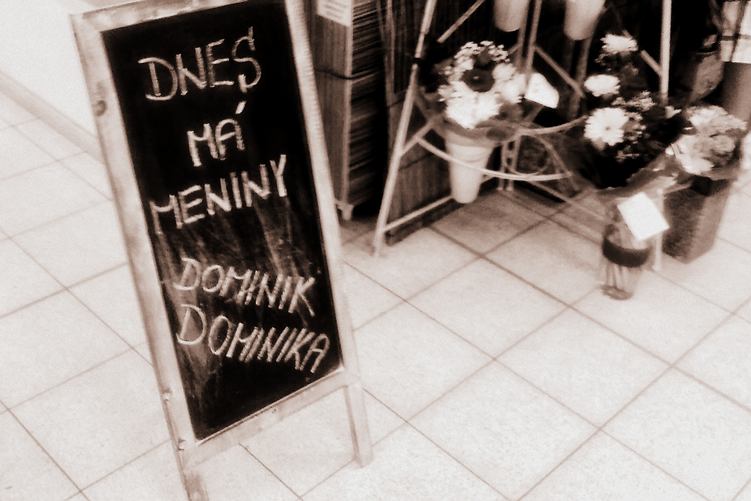 DNES
MÁ
MENINY
DOMINIK
DOMINIKA